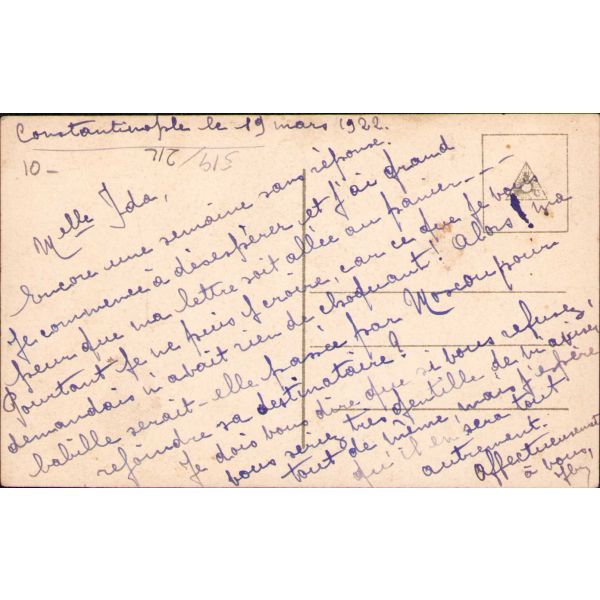 Constantinople le 19 mars 1922.
10- 519/212
Melle Ida,
Encore une semaine sans réponse.
Je commence à désespérer et j'ai grand
peur que ma lettre soit allée au panier---
Pourtant je ne puis y croire, car ce que je vous
demandais n'avait rien de choquant! Alors! ma
babille serait-elle passée par Moscou pour
rejoindre sa destinataire?
Je dois vous dire que si vous refusez,
vous seriez très gentille de m'aviser
tout de même mais j'espère
qu'il en sera tout
autrement.
Affectueusement
à vous,